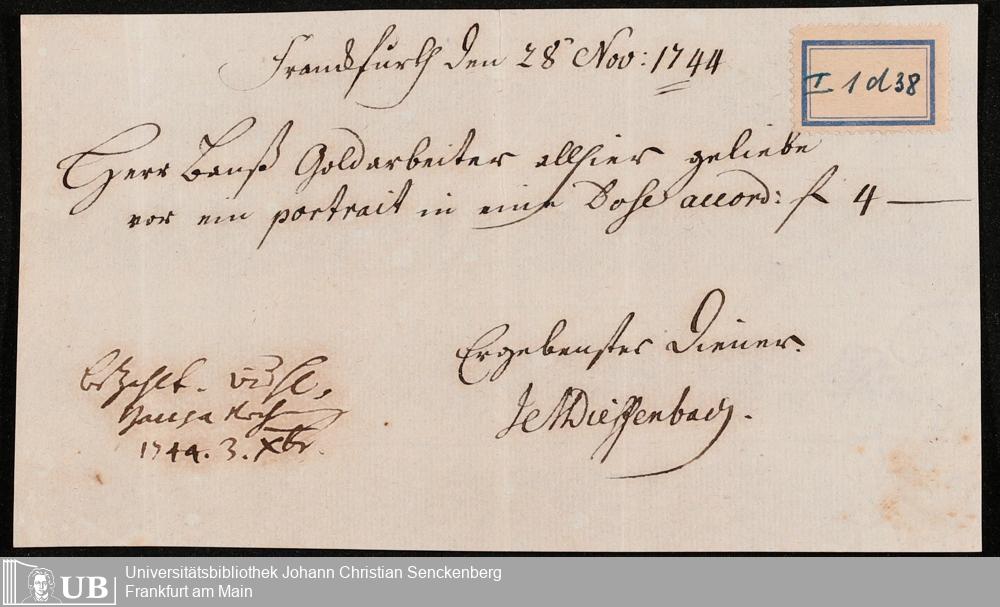 Franckfurth den 28 Nov: 1744
I 1 d 38
Herr Goldarbeiter allhier geliebe
vor ein portrait in eine Dose accord: f 4 —
Ergebenster Diener.
Dieffenbach.
bezahlt.
1744. 3. Xbr.
UB
Universitätsbibliothek Johann Christian Senckenberg
Frankfurt am Main